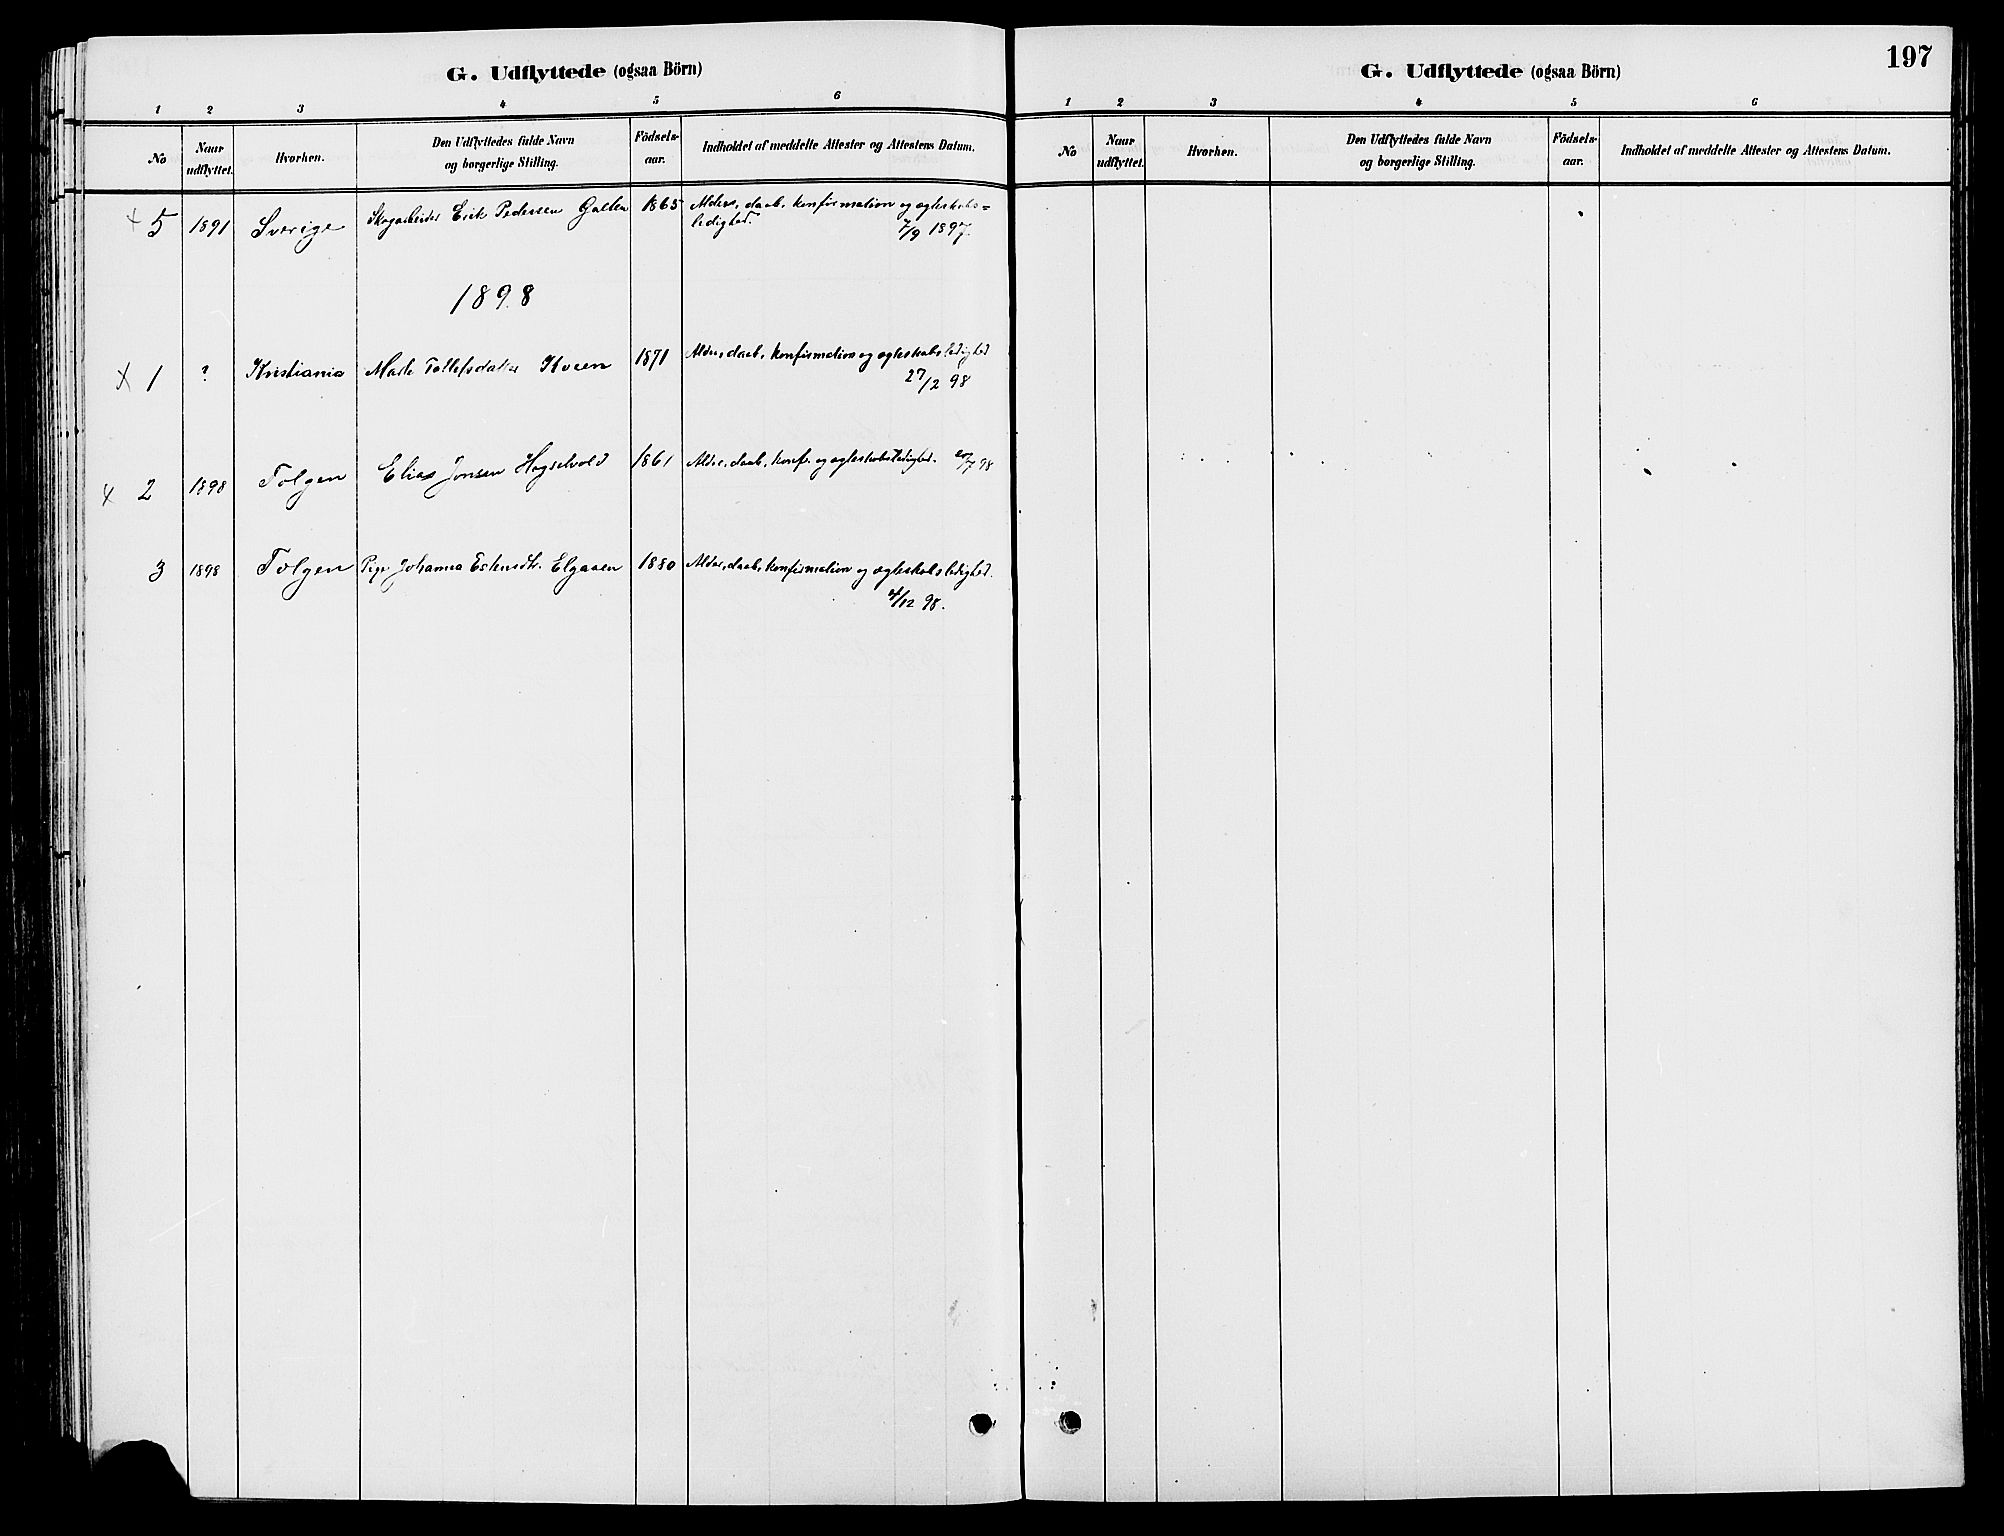 G. Udflyttede (ogsaa Börn)
1 2 3 4 5 6
No Naar udflyttet. Hvorhen. Den Udflyttedes fulde Navn og borgerlige Stilling. Födsels-aar. Indholdet af meddelte Attester og Attestens Datum.
5 1891 Sverige Skogarbeider Erik Pedersen Galten 1865 Alders, daab, konfirmation og ægteskabs=
ledighed. 7/9 1897.
1898
1 ? Kristiania Marte Tollefsdatter Kveen 1871 Alder, daab, konfirmation og ægteskabsledighed
27/2 98
2 1898 Tolgen Elias Jonsen Hogselvold 1861 Alder, daab, konf. og ægteskabsledighed. /7 98
3 1898 Tolgen Pige Johanna Eskesdtr. Elgaaen 1880 Alder, daab, konfirmation og ægteskabsledighed.
/12 98.
197
G. Udflyttede (ogsaa Börn)
1 2 3 4 5 6
No Naar udflyttet. Hvorhen. Den Udflyttedes fulde Navn og borgerlige Stilling. Födsels-aar. Indholdet af meddelte Attester og Attestens Datum.